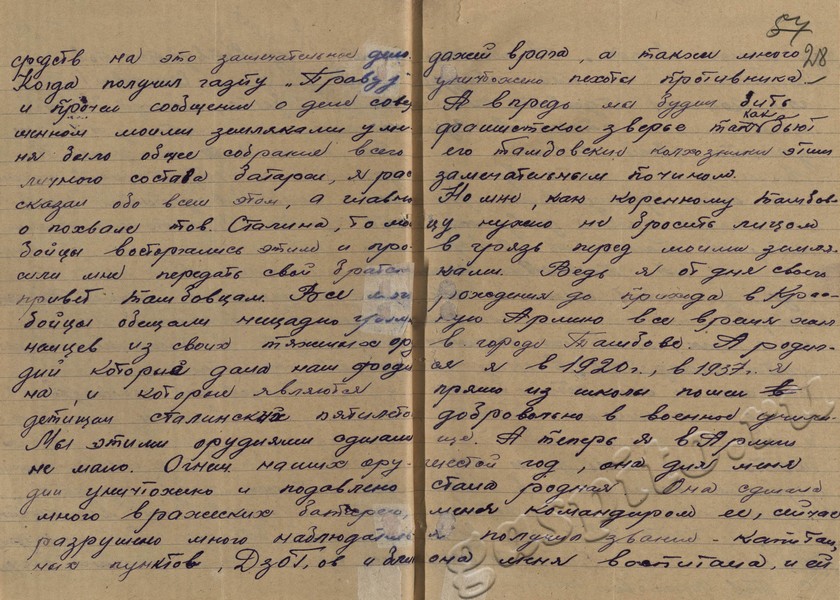 средств на это замечательное дело.
Когда получил газету „Правду"
и прочел сообщение о деле совер
шенном моими земляками у ме-
ня было общее собрание всего
личного состава батареи, я рас
сказал обо всем этом, а главно
о похвале тов. Сталина, то мои
бойцы восторгались этим и про-
сили мне передать свой братск
привет Тамбовцам. Все мои
бойцы обещали нещадно гром
немцев из своих тяжелых ору
дий которые дала нам Роди
на, и которые являются
детищам сталинских пятилето
Мы этими орудиями сделали
не мало. Огнем наших ору-
дий уничтожено и подавлено
много вражеских баттерей,
разрушено много наблюдатель
ных пунктов, ДзОТ,ов и блин
57
28
дажей врага, а также много
уничтожено пехоты противника.
А впредь мы будем бить
фашистское зверье так как бьют
его Тамбовские колхозники этим
замечательным почином.
Но мне, как коренному Тамбов-
цу нужно не бросить лицом
в грязь перед моими земля-
ками. Ведь я от дня своего
рождения до прихода в Крас-
ную Армию все время жил
в городе Тамбове. А родил-
ся я в 1920г., в 1937г. я
прямо из школы пошел в
добровольно в военное учили
ще. А теперь я в Армии
шестой год, она для меня
стала родная Она сделала
меня командиром ее, сейчас
я получил звание - капитан,
она меня воспитала, и ей
gaspito.ru